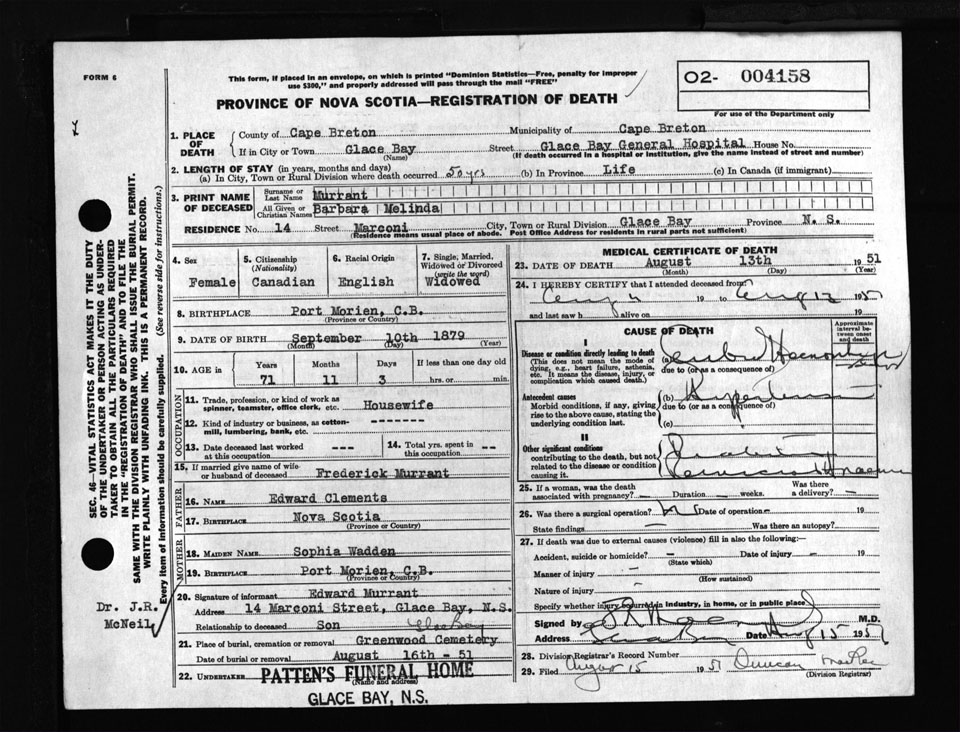 FORM 6
This form, if placed in an envelope, on which is printed "Dominion Statistics—Free, penalty for improper
use $300," and properly addressed will pass through the mail "FREE"
O2- 004158
PROVINCE OF NOVA SCOTIA—REGISTRATION OF DEATH
For use of the Department only
1. PLACE OF DEATH
County of Cape Breton Municipality of Cape Breton
If in City or Town Glace Bay Street Glace Bay General Hospital House No.
(Name) (If death occurred in a hospital or institution, give the name instead of street and number)
2. LENGTH OF STAY (in years, months and days)
(a) In City, Town or Rural Division where death occurred 50 yrs (b) In Province Life (c) In Canada (if immigrant)
3. PRINT NAME OF DECEASED
Surname or Last Name Murrant
All Given or Christian Names Barbara Melinda
RESIDENCE No. 14 Street Marconi City, Town or Rural Division Glace Bay Province N. S.
(Residence means usual place of abode. Post Office Address for residents in rural parts not sufficient)
4. Sex Female
5. Citizenship (Nationality) Canadian
6. Racial Origin English
7. Single, Married, Widowed or Divorced (write the word) Widowed
8. BIRTHPLACE Port Morien, C.B.
(Province or Country)
9. DATE OF BIRTH September 10th 1879
(Month) (Day) (Year)
10. AGE in Years Months Days If less than one day old
71 11 3 hrs. or min.
OCCUPATION
11. Trade, profession, or kind of work as
spinner, teamster, office clerk, etc. Housewife
12. Kind of industry or business, as cotton-
mill, lumbering, bank, etc. --------
13. Date deceased last worked at this occupation ---
14. Total yrs. spent in this occupation ---
15. If married give name of wife
or husband of deceased Frederick Murrant
FATHER
16. NAME Edward Clements
17. BIRTHPLACE Nova Scotia
(Province or Country)
MOTHER
18. MAIDEN NAME Sophia Wadden
19. BIRTHPLACE Port Morien, C.B.
(Province or Country)
20. Signature of informant Edward Murrant
Address 14 Marconi Street, Glace Bay, N.S.
Relationship to deceased Son Glace Bay
21. Place of burial, cremation or removal Greenwood Cemetery
Date of burial or removal August 16th - 51
22. UNDERTAKER PATTEN'S FUNERAL HOME
(Name and address)
GLACE BAY, N.S.
MEDICAL CERTIFICATE OF DEATH
23. DATE OF DEATH August 13th 1951
(Month) (Day) (Year)
24. I HEREBY CERTIFY that I attended deceased from
19 to Aug 12 1951
and last saw h alive on 19
CAUSE OF DEATH
Approximate interval between onset and death
I
Disease or condition directly leading to death
(This does not mean the mode of dying, e.g., heart failure, asthenia, etc. It means the disease, injury, or complication which caused death.)
(a) Cerebral Haemorrhage
due to (or as a consequence of)
Antecedent causes
Morbid conditions, if any, giving rise to the above cause, stating the underlying condition last.
(b) Hypertension
due to (or as a consequence of)
(c)
II
Other significant conditions
contributing to the death, but not related to the disease or condition causing it.
25. If a woman, was the death
associated with pregnancy? — Duration — weeks. Was there a delivery? —
26. Was there a surgical operation? No Date of operation — 19
State findings — Was there an autopsy?
27. If death was due to external causes (violence) fill in also the following:—
Accident, suicide or homicide? — Date of injury — 19
(State which)
Manner of injury —
(How sustained)
Nature of injury —
Specify whether injury occurred in industry, in home, or in public place
Signed by M.D.
Address Glace Bay Date Aug 15 1951
28. Division Registrar's Record Number
29. Filed August 15 1951 Duncan
(Division Registrar)
SEC. 46—VITAL STATISTICS ACT MAKES IT THE DUTY
OF THE UNDERTAKER OR PERSON ACTING AS UNDER-
TAKER TO OBTAIN ALL THE PARTICULARS REQUIRED
IN THE "REGISTRATION OF DEATH" AND TO FILE THE
SAME WITH THE DIVISION REGISTRAR WHO SHALL ISSUE THE BURIAL PERMIT.
WRITE PLAINLY WITH UNFADING INK. THIS IS A PERMANENT RECORD.
Every item of information should be carefully supplied. (See reverse side for instructions.)
Dr. J.R.
McNeil